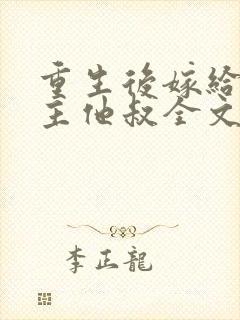 重生後嫁給
主他叔全文
李正龍